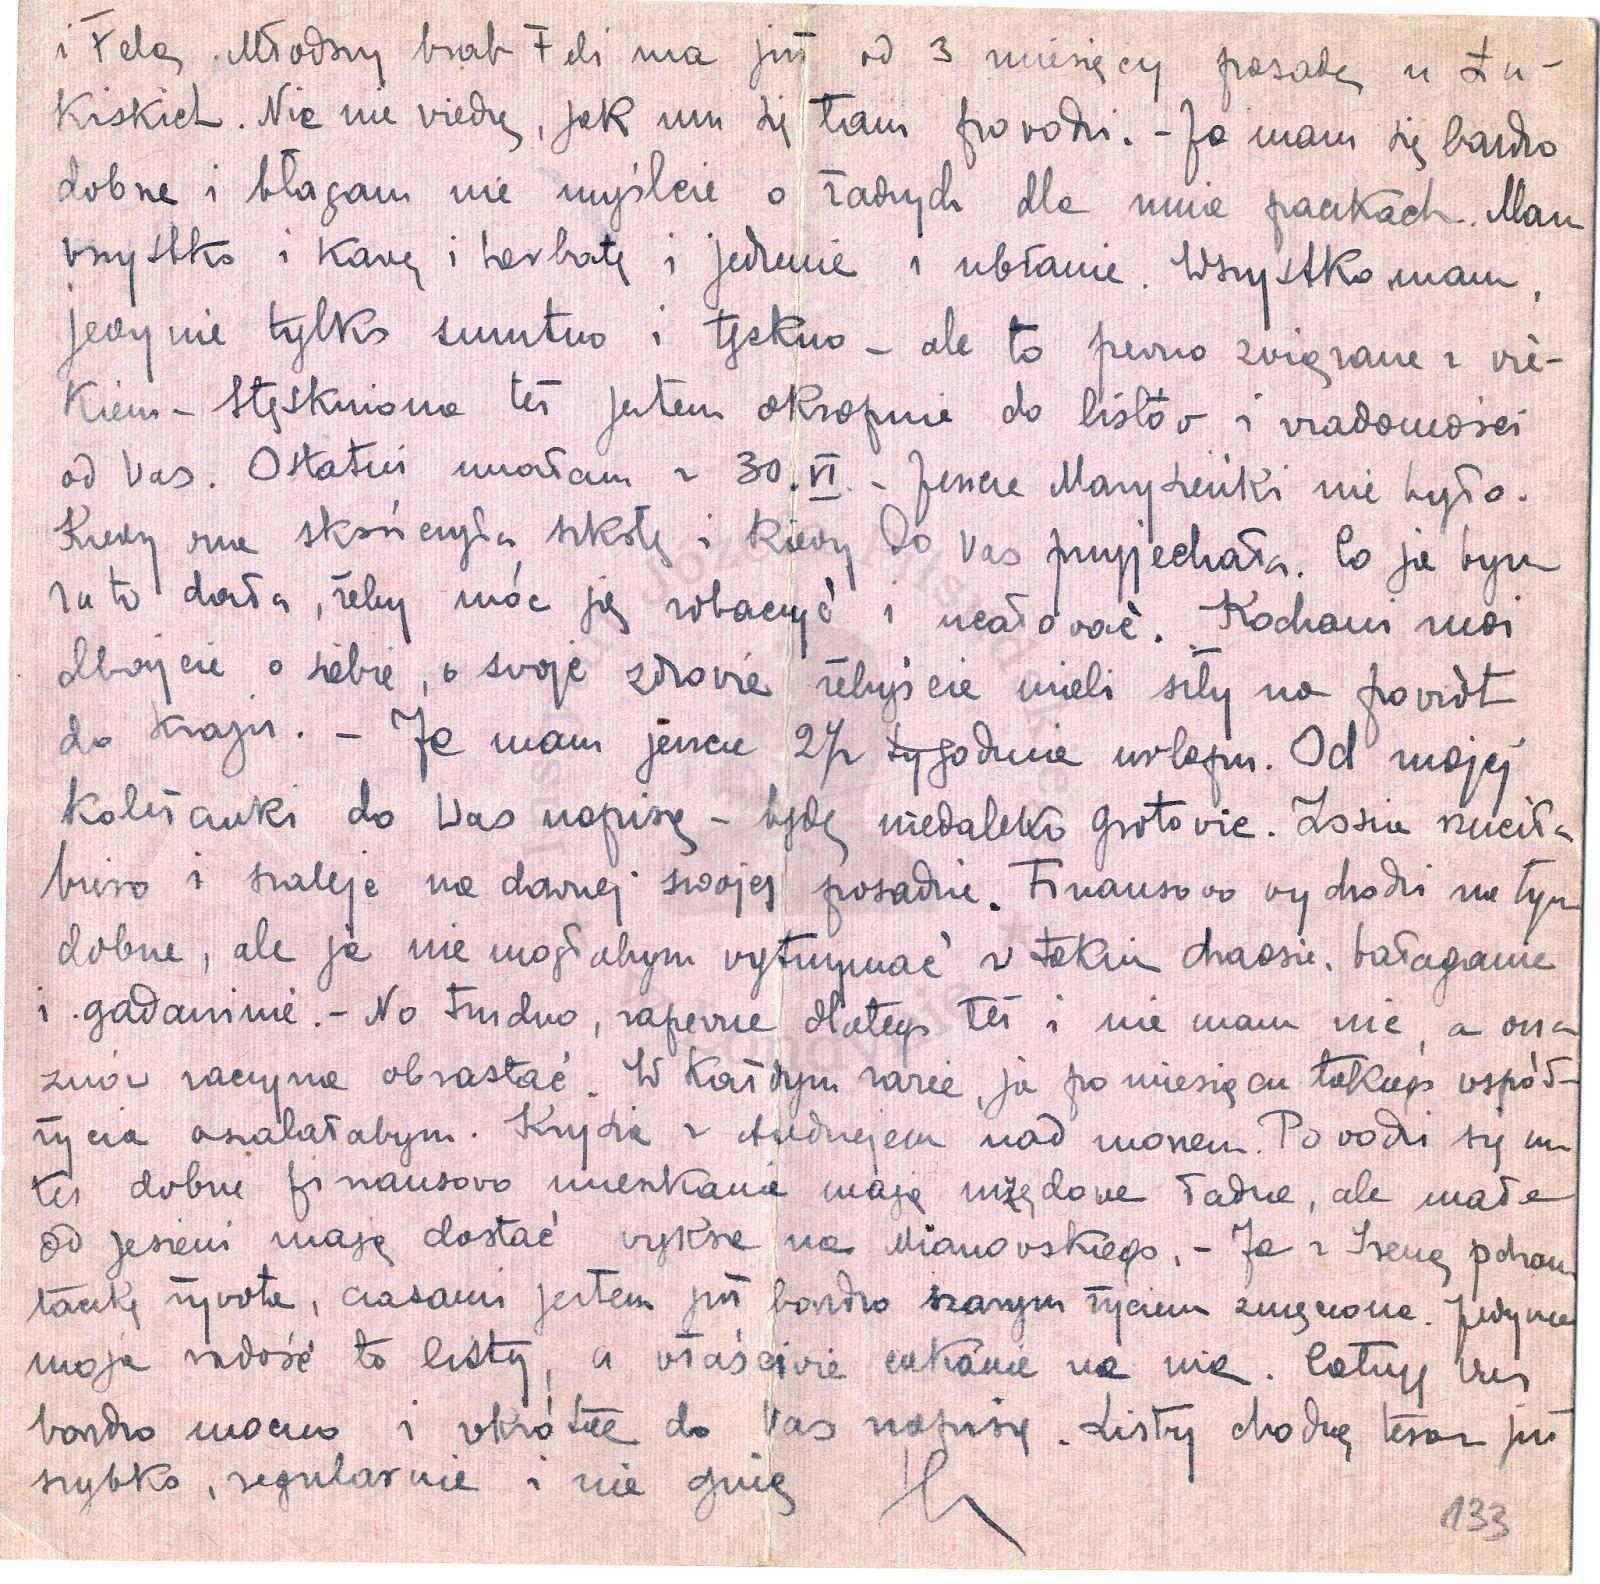 i Felę. Młodszy brat Feli ma już od 3 miesięcy posadę u Łu-
kiskich. Nic nie viedzę, jak mu się tam povodzi. - Ja mam się bardzo
dobrze i błagam nie myślcie o żadnych dla mnie paczkach. Mam
vszystko i kavę i herbatę i jedzenie i ubranie. Wszystko mam,
jedynie tylko smutno i tęskno - ale to pevno zviązane z vie-
kiem - Stęskniona też jestem okropnie do listóv i viadomości
od Vas. Ostatni miałam z 30.VI. - Jeszcze Marysieńki nie było.
Kiedy ona skończyła szkołę i kiedy do Vas przyjechała. Co ja bym
za to dała, żeby móc ją zobaczyć i ucałovać. Kochani moi
dbajcie o siebie, o svoje zdrovie żebyście mieli siły na povrót
do kraju. - Ja mam jeszcze 2½ tygodnie urlopu. Od mojej
koleżanki do Was napiszę - będę niedaleko Grotovic. Zosia rzuciła
biuro i szaleje na davnej swojej posadzie. Finansovo vychodzi na tym
dobrze, ale ja nie mogłabym vytrzymać v takim chaosie, bałaganie
i gadaninie. - No trudno, zapevne dlatego też i nie mam nic, a ona
znóv zaczyna obrastać. W każdym razie, ja po miesiącu takiego vspół-
życia oszalałabym. Krysia z Andrzejem nad morzem. Povodzi się im
też dobrze finansovo mieszkanie mają urzędove ładne, ale małe
od jesieni mają dostać vyksze na Mianovskiego. - Ja z Ireną pcham
taczkę żyvota, czasami jestem już bardzo szarym życiem zmęczona. Jedyna
moja radość to listy, a vłaścivie czekanie na nie. Całuję Vas
bardzo mocno i vkrótce do Vas napiszę. Listy chodzą teraz już
szybko, regularnie i nie giną
133